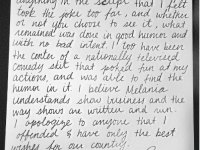 imagining in the script that I felt
took the joke too far, and whether
or not you choose to see it, what
remained was done in good humor and
with no bad intent. I too have been
the center of a nationally televised
comedy skit that poked fun at my
actions, and was able to find the
humor in it. I believe Melania
understands show business and the
way shows are written and run.
I apologize to anyone that I
offended & have only the best
wishes for our country.